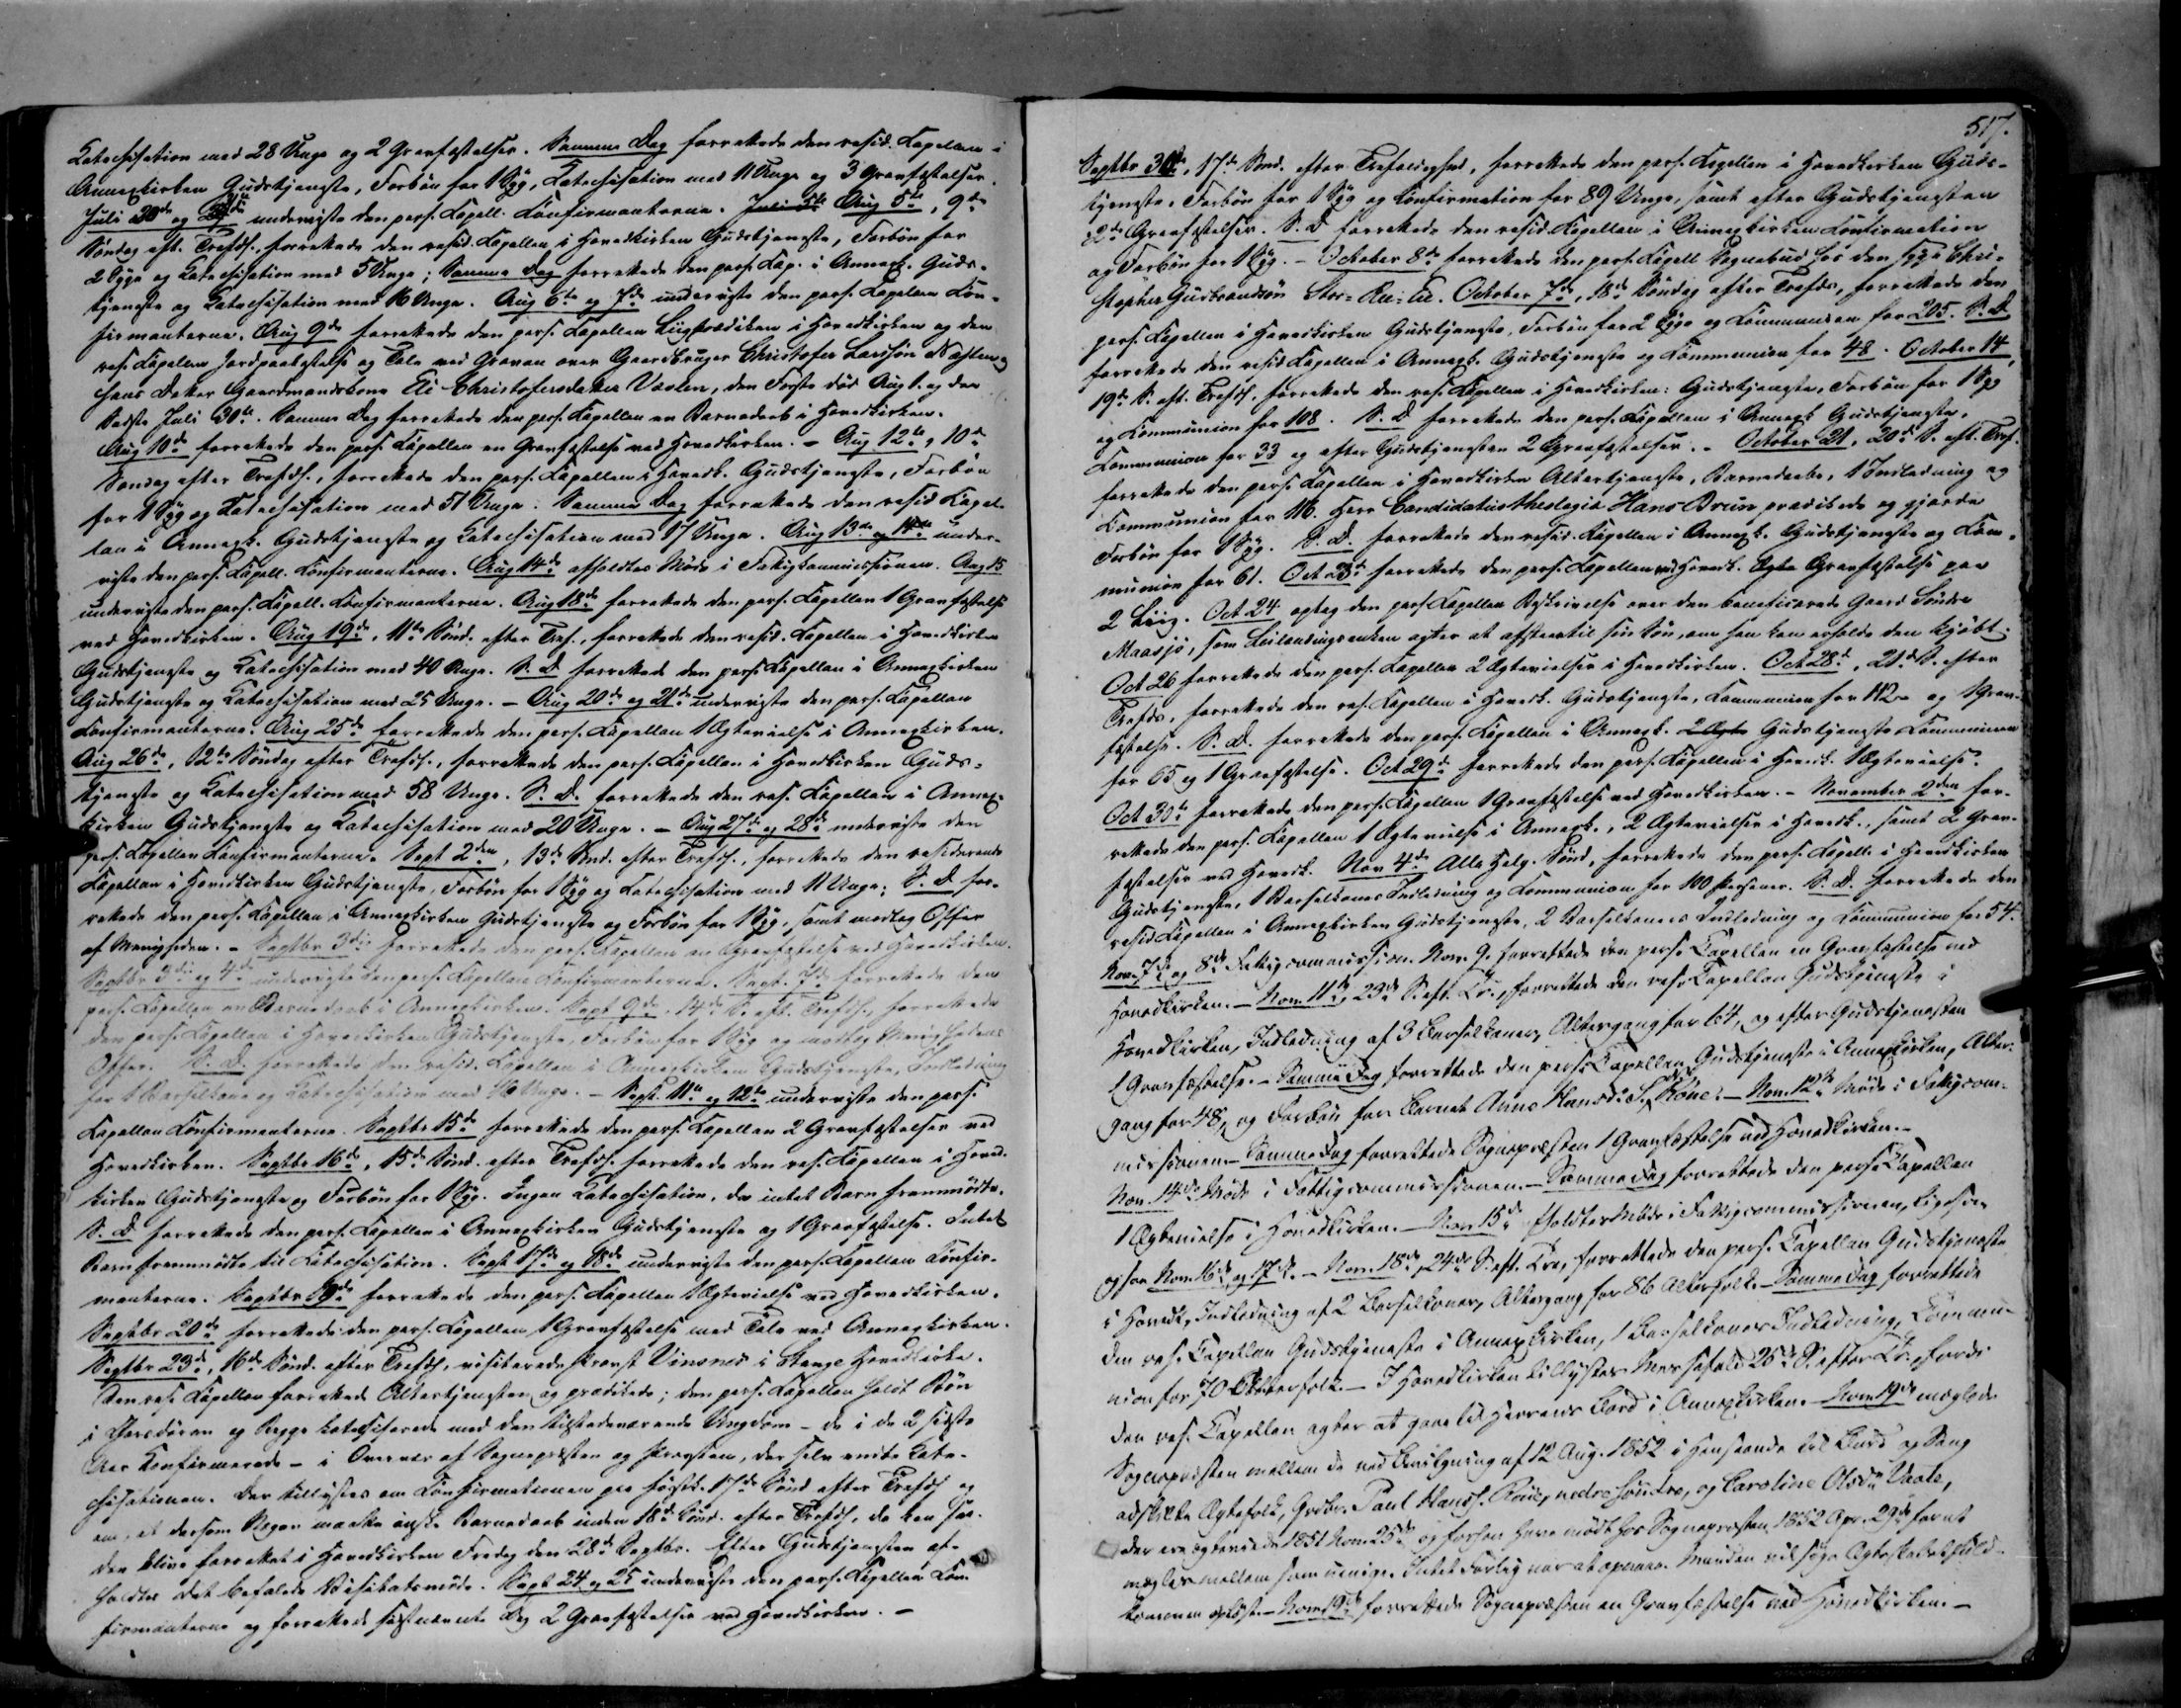 Katechisation med 28 Unge og 2 Gravfæstelser. Samme Dag forrettede den resid. Capellan i
Annexkirken Gudstjeneste, Forbøn for 1 Syg, Katechisation med 11 Unge og 3 Gravfæstelser.
Juli 30de og underviste den pers. Capell. Confirmanterne. Juli 5te Aug 5te, 9de
Søndag eft. Trefdh. forrettede den resid. Capellan i Hovedkirken Gudstjeneste, Forbøn for
2 Syge og Katechisation med 5 Unge; Samme Dag forrettede den pers. Cap. i Annexk. Guds-
tjeneste og Katechisation med 16 Unge. Aug 6te og 7de underviste den pers. Capellan Con-
firmanterne. Aug 9de forrettede den pers. Capellan Liigprædiken i Hovedkirken og den
res. Capellan Jordpaakastelse og Tale ved Graven over Gaardbruger Christofer Larssøn og
hans Datter Gaardmandskone Eli Christofersdatter Vaalen, den Første død Aug 1. og den
Sidste Juli 30te. Samme Dag forrettede den pers. Capellan en Barnedaab i Hovedkirken.
Aug 10de forrettede den pers. Capellan en Gravfæstelse ved Hovedkirken. – Aug. 12te, 10de
Søndag efter Trefdh., forrettede den pers. Capellan i Hovedk. Gudstjeneste, Forbøn
for 1 Syg og Katechisation med 51 Unge. Samme Dag forrettede den resid. Capel-
lan i Annexk. Gudstjeneste og Katechisation med 17 Unge. Aug 13de og 14de under-
viste den pers. Capell. Confirmanterne. Aug 14de afholdtes Møde i Fattigkommissionen. Aug 15
underviste den pers. Capell. Confirmanterne. Aug 18de forrettede den pers. Capellan 1 Gravfæstelse
ved Hovedkirken. Aug 19de, 11te Sønd. efter Tref., forrettede den resid. Capellan i Hovedkirken
Gudstjeneste og Katechisation med 40 Unge. S. D. forrettede den pers. Capellan i Annexkirken
Gudstjeneste og Katechisation med 25 Unge. – Aug 20de og 21de underviste den pers. Capellan
Confirmanterne. Aug 25de forrettede den pers. Capellan 1 Ægtevielse i Annexkirken.
Aug 26de, 12te Søndag efter Trefdh., forrettede den pers. Capellan i Hovedkirken Guds-
tjeneste og Katechisation med 58 Unge. S. D. forrettede den res. Capellan i Annex-
kirken Gudstjeneste og Katechisation med 20 Unge. – Aug 27de og 28de underviste den
pers. Capellan Confirmanterne. Sept 2den, 13de Sønd. efter Trefdh., forrettede den residerende
Capellan i Hovedkirken Gudstjeneste, Forbøn for 1 Syg og Katechisation med 11 Unge; S. D. for-
rettede den pers. Capellan i Annexkirken Gudstjeneste og Forbøn for 1 Syg, samt modtog Offer
af Menigheden. – Septbr 3die forrettede den pers. Capellan en Gravfæstelse ved Hovedkirken.
Septbr 3die og 4de underviste den pers. Capellan Confirmanterne. Sept. 7de forrettede den
pers. Capellan en Barnedaab i Annexkirken. Sept 9de, 14de S. eft. Trefdh., forrettede
den pers. Capellan i Hovedkirken Gudstjeneste, Forbøn for 1 Syg og modtog Menighedens
Offer. S. D. forrettede den resid. Capellan i Annexkirken Gudstjeneste, Indledning
for 1 Barselkone og Katechisation med 16 Unge. – Sept. 11te og 12te underviste den pers.
Capellan Confirmanterne. Septbr 15de forrettede den pers. Capellan 2 Gravfæstelser ved
Hovedkirken. Septbr 16de, 15de Sønd. efter Trefdh. forrettede den res. Capellan i Hoved-
kirken Gudstjeneste og Forbøn for 1 Syg. Ingen Katechisation, da intet Barn fremmødte.
S. D. forrettede den pers. Capellan i Annexkirken Gudstjeneste og 1 Gravfæstelse. Intet
Barn fremmødte til Katechisation. Sept 17de og 18de underviste den pers. Capellan Confir-
manterne. Septbr 19de forrettede den pers. Capellan 1 Ægtevielse ved Hovedkirken.
Septbr 20de forrettede den pers. Capellan 1 Gravfæstelse med Tale ved Annexkirken.
Septbr 23de, 16de Sønd. efter Trefdh. visiterede Provst Vinsnes i Stange Hovedkirke.
Den res. Capellan forrettede Altertjenesten og prædikede; den pers. Capellan holdt Bøn
i Chordøren og Begge katechiserede med den tilstedeværende Ungdom – de i de 2 sidste
Aar Confirmerede – i Overvær af Sognepræsten og Provsten, der selv endte Kate-
chisationen. Der tillystes om Confirmationen paa førstk. 17de Sønd. efter Trefdh. og
om, at dersom Nogen maatte ønske Barnedaab inden 18de Sønd. efter Trefdh., da kan saa-
dan blive forrettet i Hovedkirken Fredag den 28de Septbr. Efter Gudstjenesten af-
holdtes det befalede Visitatsmøde. Sept 24 og 25 underviste den pers. Capellan Con-
firmanterne og forrettede sidstnævnte Dag 2 Gravfæstelser ved Hovedkirken. –
517.
Septbr 30te, 17de Sønd. efter Trefoldighed, forrettede den pers. Capellan i Hovedkirken Guds-
tjeneste, Forbøn for 1 Syg og Confirmation for 89 Unge, samt efter Gudstjenesten
2de Gravfæstelser. S. D. forrettede den resid. Capellan i Annexkirken Confirmation
og Forbøn for 1 Syg. – October 8de forrettede den pers. Capell Sognebud hos den syge Chri-
stopher Gudbrandsøn Stor-Re-. October 7de, 18de Søndag efter Trefds, forrettede den
pers. Capellan i Hovedkirken Gudstjeneste, Forbøn for 2 Syge og Communion for 205. S. D.
forrettede den resid Capellan i Annexk. Gudstjeneste og Communion for 48. October 14,
19de S. eft. Trefdh. forrettede den res. Capellan i Hovedkirken: Gudstjeneste, Forbøn for 1 Syg
og Communion for 108. S. D. forrettede den pers. Capellan i Annexk Gudstjeneste,
Communion for 33 og efter Gudstjenesten 2 Gravfæstelser. – October 21, 20de S. eft. Tref.
forrettede den pers. Capellan i Hovedkirken Altertjeneste, Barnedaab, 1 Indledning og
Communion for 116. Herr Candidatus theologiæ Hans Brun prædikede og gjorde
Forbøn for 1 Syg. S. D. forrettede den resid. Capellan i Annexk. Gudstjeneste og Com-
munion for 61. Oct 23de forrettede den pers. Capellan ved Hovedk. Gravfæstelse paa
2 Liig. Oct 24 optog den pers. Capellan Beskrivelse over den beneficerede Gaard Søndre
Maasjø, som Leilændingsenken agter at afstaa til sin Søn, om han kan erholde den kjøbt.
Oct 26 forrettede den pers. Capellan 2 Ægtevielser i Hovedkirken. Oct 28de, 21de S. efter
Trefds, forrettede den res. Capellan i Hovedk. Gudstjeneste, Communion for 112 og 1 Grav-
fæstelse. S. D. forrettede den pers. Capellan i Annexk. Gudstjeneste, Communion
for 65 og 1 Gravfæstelse. Oct 29de forrettede den pers. Capellan i Hovedk. 1 Ægtevielse.
Oct 30te forrettede den pers. Capellan 1 Gravfæstelse ved Hovedkirken. – November 2den for-
rettede den pers. Capellan 1 Ægtevielse i Annexk., 2 Ægtevielser i Hovedk., samt 2 Grav-
fæstelser ved Hovedk. Nov 4de Alle Helg. Sønd, forrettede den pers. Capell. i Hovedkirken
Gudstjeneste, 1 Barselkones Indledning og Communion for 100 Personer. S. D. forrettede den
resid Capellan i Annexkirken Gudstjeneste, 2 Barselkoners Indledning og Communion for 54.
Nov. 7de og 8de Fattigcommission. Nov. 9. forrettede den pers. Capellan en Gravfæstelse ved
Hovedkirken. – Nov. 11te, 23de S. eft. Tr., forrettede den res. Capellan Gudstjeneste i
Hovedkirken, Indledning af 3 Barselkoner, Altergang for 64, og efter Gudstjenesten
1 Gravfæstelse. – Samme Dag forrettede den pers. Capellan Gudstjeneste i Annexkirken, Alter-
gang for 48, og Forbøn for Barnet Anne Hansd. S. Røne. – Nov. 12te Møde i Fattigcom-
missionen. – Samme Dag forrettede Sognepræsten 1 Gravfæstelse ved Hovedkirken. –
Nov. 14de Møde i Fattigcommissionen. – Samme Dag forrettede den pers. Capellan
1 Ægtevielse i Hovedkirken. – Nov 15de afholdtes Møde i Fattigcommissionen, ligesaa
ogsaa Nov. 16de og 17de. – Nov. 18de, 24de S. eft. Tr., forrettede den pers. Capellan Gudstjeneste
i Hovedk., Indledning af 2 Barselkoner, Altergang for 86 Alterfolk. – Samme Dag forrettede
den res. Capellan Gudstjeneste i Annexkirken, 1 Barselkones Indledning, Commu-
nion for 70 Alterfolk. – I Hovedkirken tillystes Messefald 25de S. efter Tr., fordi
den res. Capellan agter at gaae til Herrens Bord i Annexkirken. – Nov. 19de mæglede
Sognepræsten mellem de ved Bevilgning af 12 Aug. 1852 i Henseende til Bord og Seng
adskilte Ægtefolk, Grdbr. Paul Hanss. Røne, nedre søndre, og Caroline Olsdr Vaale,
der ere ægteviede 1851 Nov. 25de og forhen have mødt hos Sognepræsten 1852 Apr. 29de for at
mægles mellem som uenige. Intet Forlig var at opnaae. Manden vil søge Ægteskabet fuld-
kommen opløst. – Nov. 19de forrettede Sognepræsten en Gravfæstelse ved Hovedkirken. –